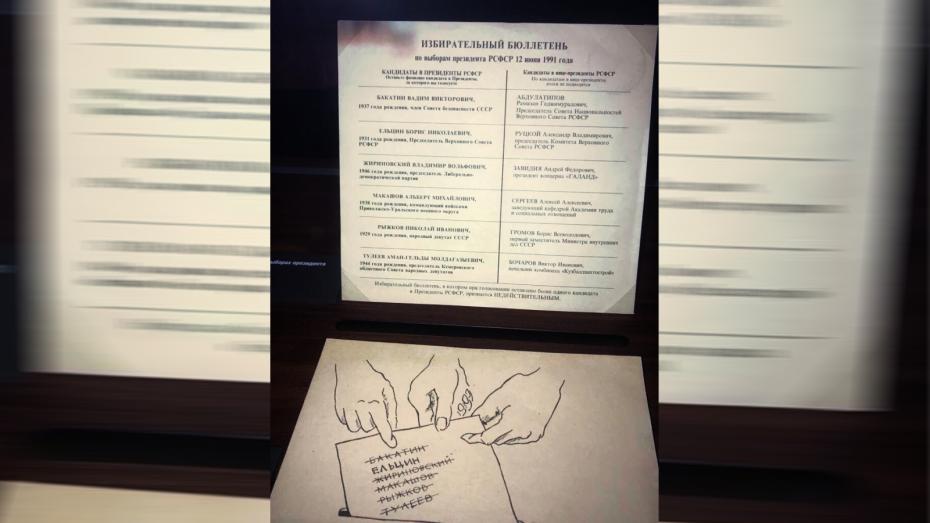 ИЗБИРАТЕЛЬНЫЙ БЮЛЛЕТЕНЬ
по выборам президента РСФСР 12 июня 1991 года
КАНДИДАТЫ В ПРЕЗИДЕНТЫ РСФСР
Оставьте фамилию кандидата в Президенты,
за которого вы голосуете
БАКАТИН ВАДИМ ВИКТОРОВИЧ,
1937 года рождения, член Совета безопасности СССР
ЕЛЬЦИН БОРИС НИКОЛАЕВИЧ,
1931 года рождения, Председатель Верховного Совета
РСФСР
ЖИРИНОВСКИЙ ВЛАДИМИР ВОЛЬФОВИЧ,
1946 года рождения, председатель Либерально-
демократической партии
МАКАШОВ АЛЬБЕРТ МИХАЙЛОВИЧ,
1938 года рождения, командующий войсками
Приволжско-Уральского военного округа
РЫЖКОВ НИКОЛАЙ ИВАНОВИЧ,
1929 года рождения, народный депутат СССР
ТУЛЕЕВ АМАН-ГЕЛЬДЫ МОЛДАГАЗЫЕВИЧ,
1944 года рождения, председатель Кемеровского
областного Совета народных депутатов
Кандидаты в вице-президенты РСФСР
АБДУЛАТИПОВ
Рамазан Гаджимурадович,
Председатель Совета Национальностей
Верховного Совета РСФСР
РУЦКОЙ Александр Владимирович,
председатель Комитета Верховного
Совета РСФСР
ЗАВИДИЯ Андрей Федорович,
президент концерна «ГАЛАНД»
СЕРГЕЕВ Алексей Алексеевич,
заведующий кафедрой Академии труда
и социальных отношений
ГРОМОВ Борис Всеволодович,
первый заместитель Министра внутренних
дел СССР
БОЧАРОВ Виктор Иванович,
начальник комбината «Кузбассшахтострой»
Избирательный бюллетень, в котором при голосовании оставлено более одного кандидата
в Президенты РСФСР, признается НЕДЕЙСТВИТЕЛЬНЫМ.
выборах президента
1993
БАКАТИН
ЕЛЬЦИН
ЖИРИНОВСКИЙ
МАКАШОВ
РЫЖКОВ
ТУЛЕЕВ